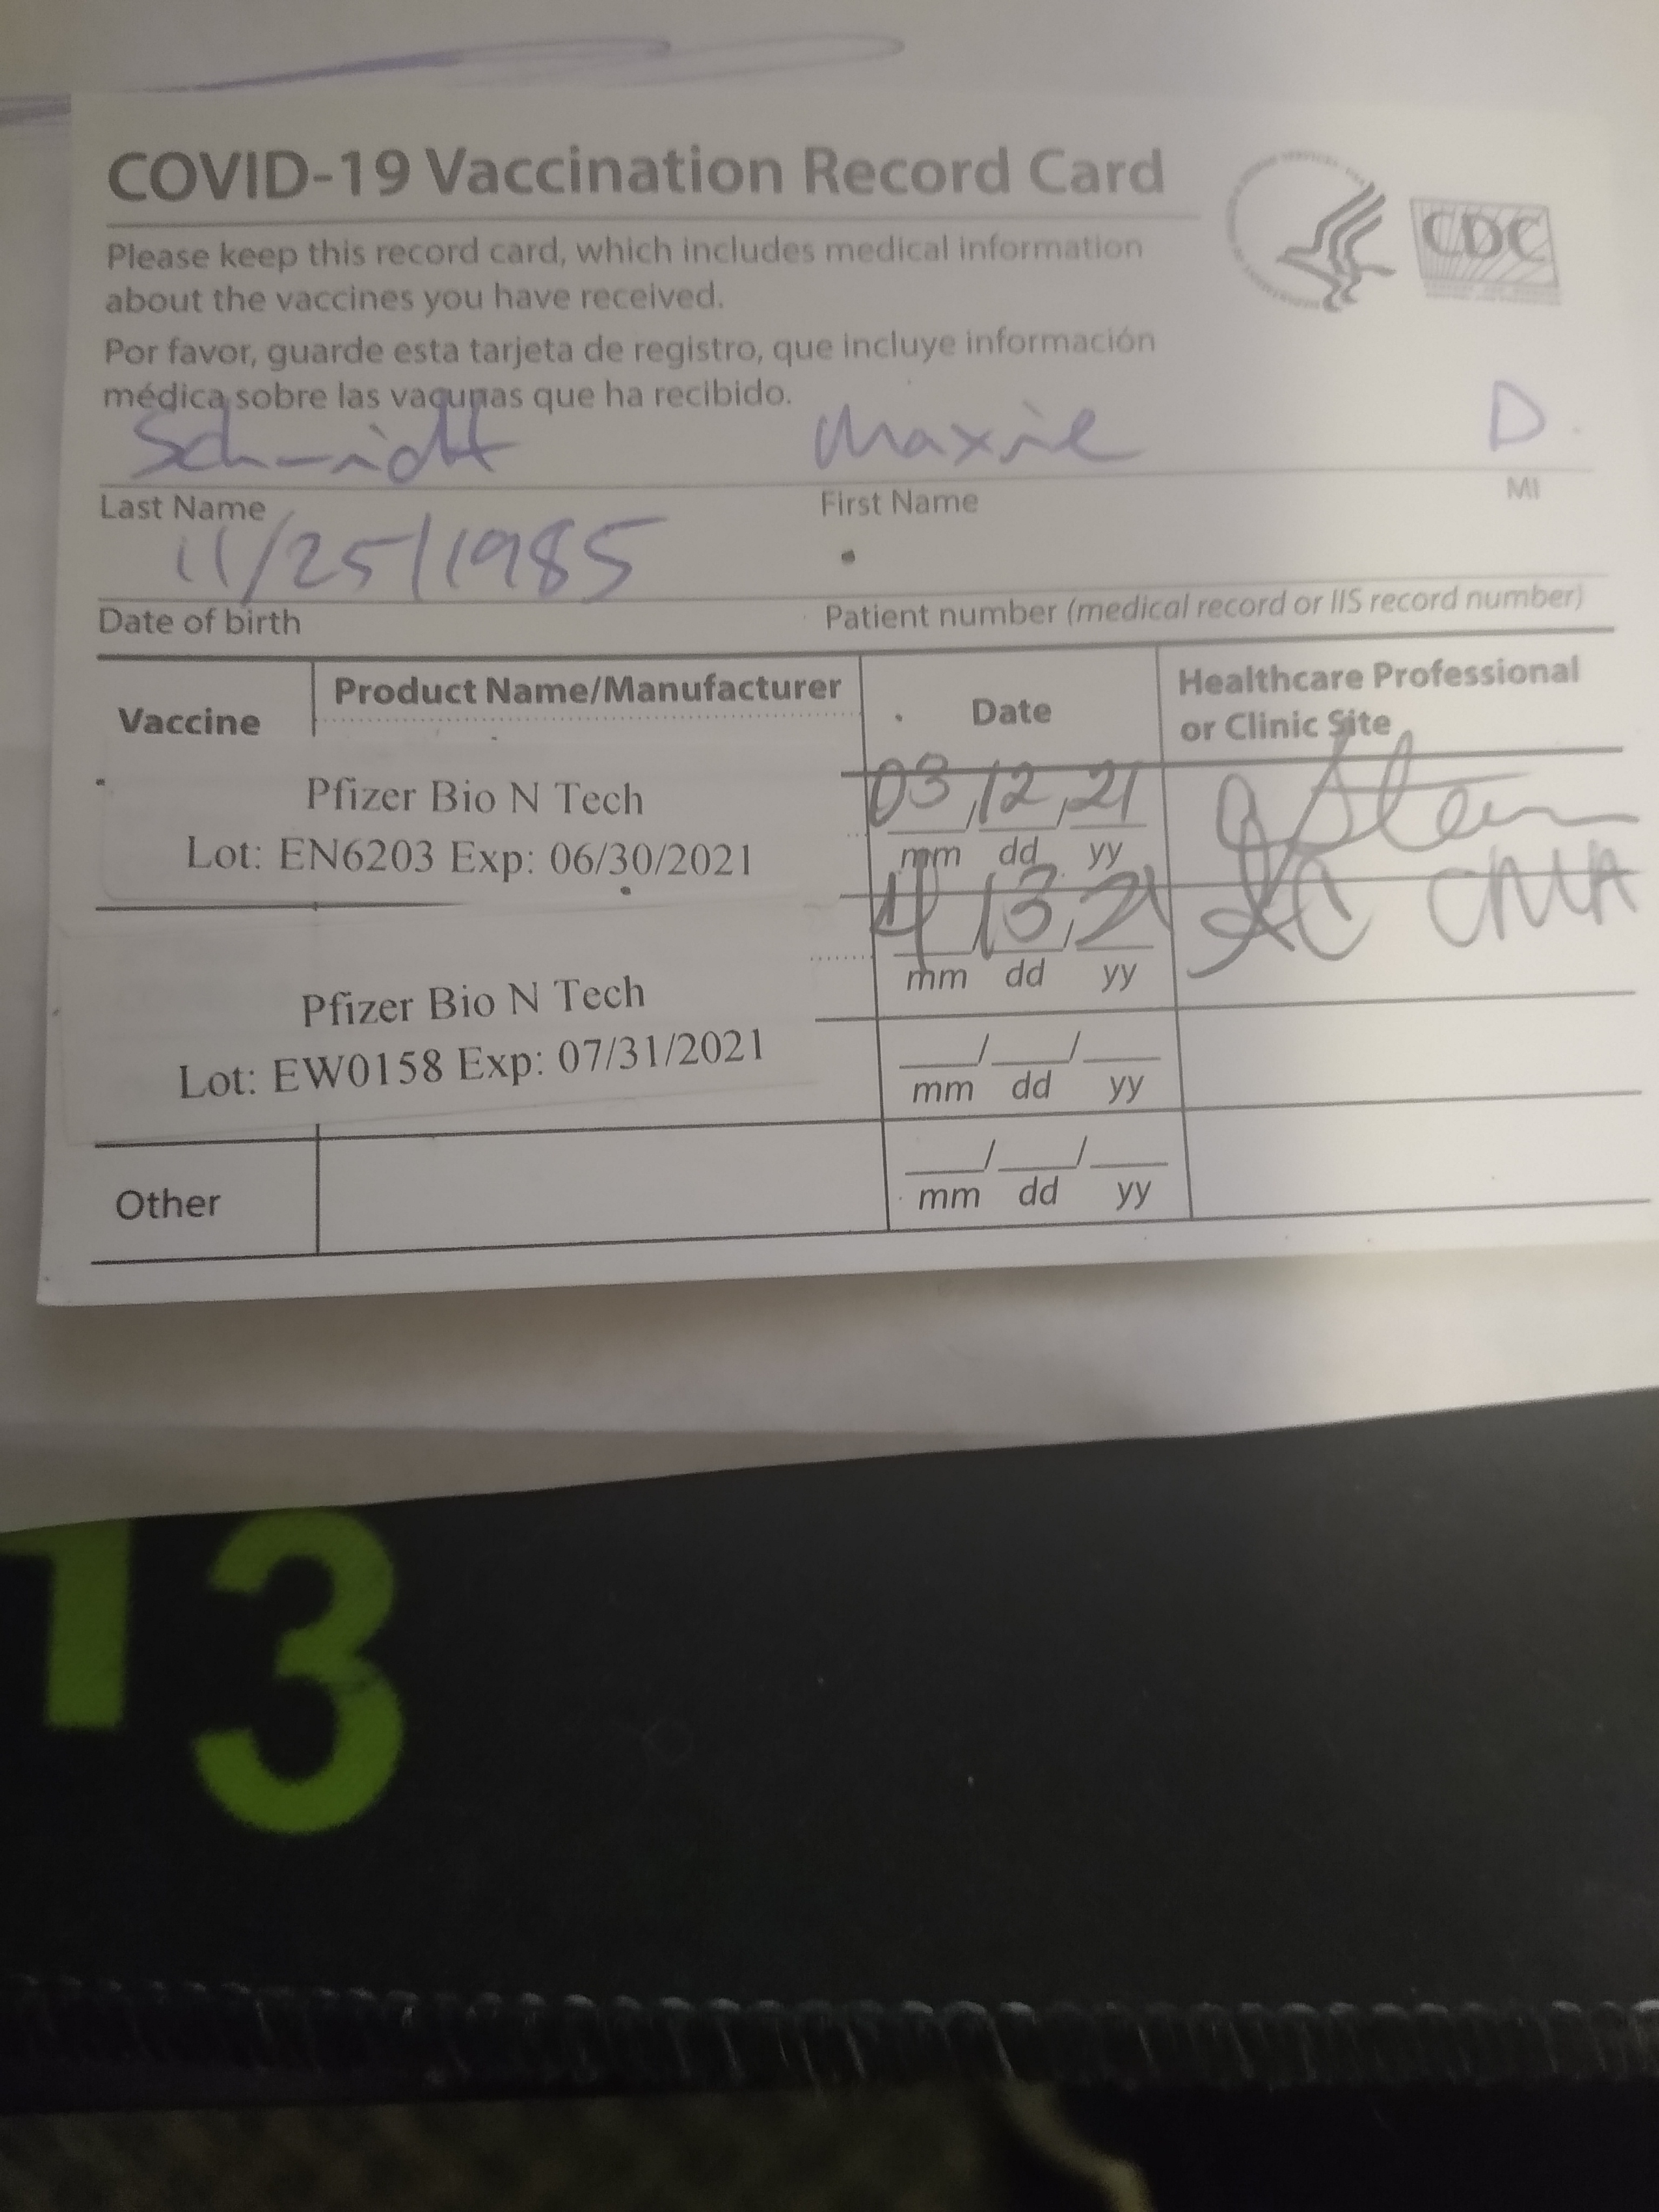 COVID-19 Vaccination Record Card
CDC
Please keep this record card, which includes medical information
about the vaccines you have received.
Por favor, guarde esta tarjeta de registro, que incluye información
médica sobre las vacunas que ha recibido.
Schmidt Maxie D.
Last Name First Name MI
11/25/1985
Date of birth Patient number (medical record or IIS record number)
Vaccine Product Name/Manufacturer Date Healthcare Professional
or Clinic Site
Pfizer Bio N Tech 03/12/21
Lot: EN6203 Exp: 06/30/2021 mm dd yy
4/13/21 CMA
Pfizer Bio N Tech mm dd yy
Lot: EW0158 Exp: 07/31/2021 / /
mm dd yy
/ /
Other mm dd yy
13